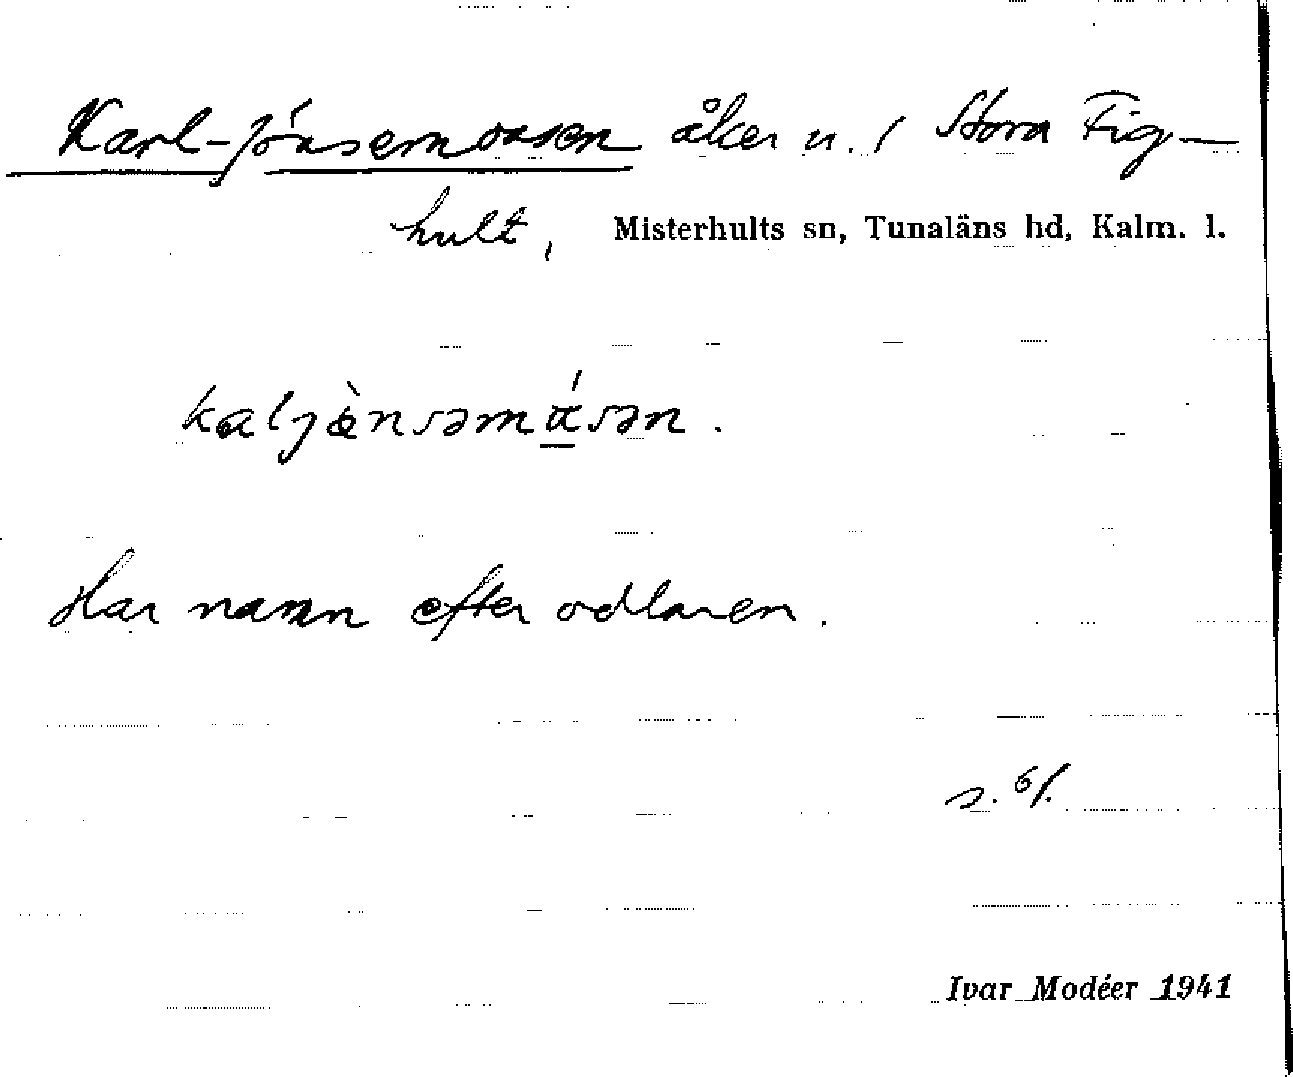 Karl-Jónsemossen åker u. / Stora Fig-
hult, Misterhults sn, Tunaläns hd, Kalm. l.
Har namn efter odlaren.
s. 6/.
Ivar Modéer 1941